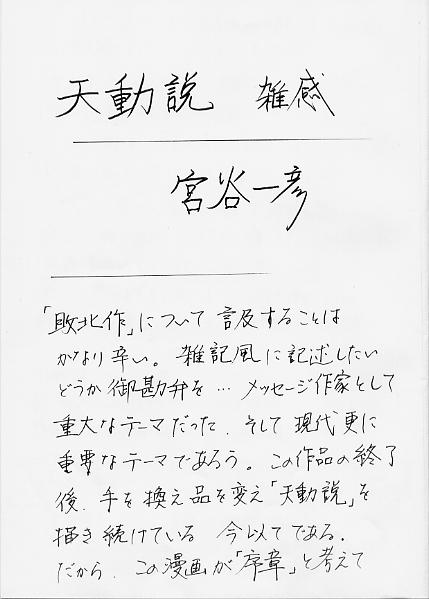 天動説 雑感
宮谷一彦
「敗北作」について 言及することは
かなり辛い。雑記風に記述したい
どうか御勘弁を… メッセージ作家として
重大なテーマだった．そして現代更に
重要なテーマであろう。この作品の終了
後．手を換え品を変え「天動説」を
描き続けている 今以てである．
だから．この漫画が「序章」と考えて